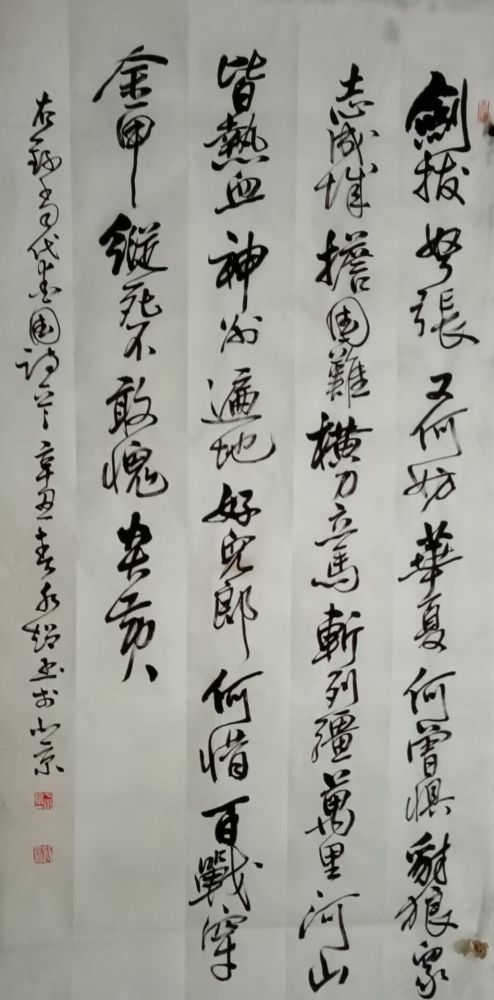 劍拔弩張又何妨華夏何曾懼豺狼眾
志成城擔國難橫刀立馬斬列疆萬里河山
皆熱血神州遍地好兒郎何惜百戰穿
金甲縱死不敢愧炎黃
右錄當代愛國詩一首辛丑春永超書於北京